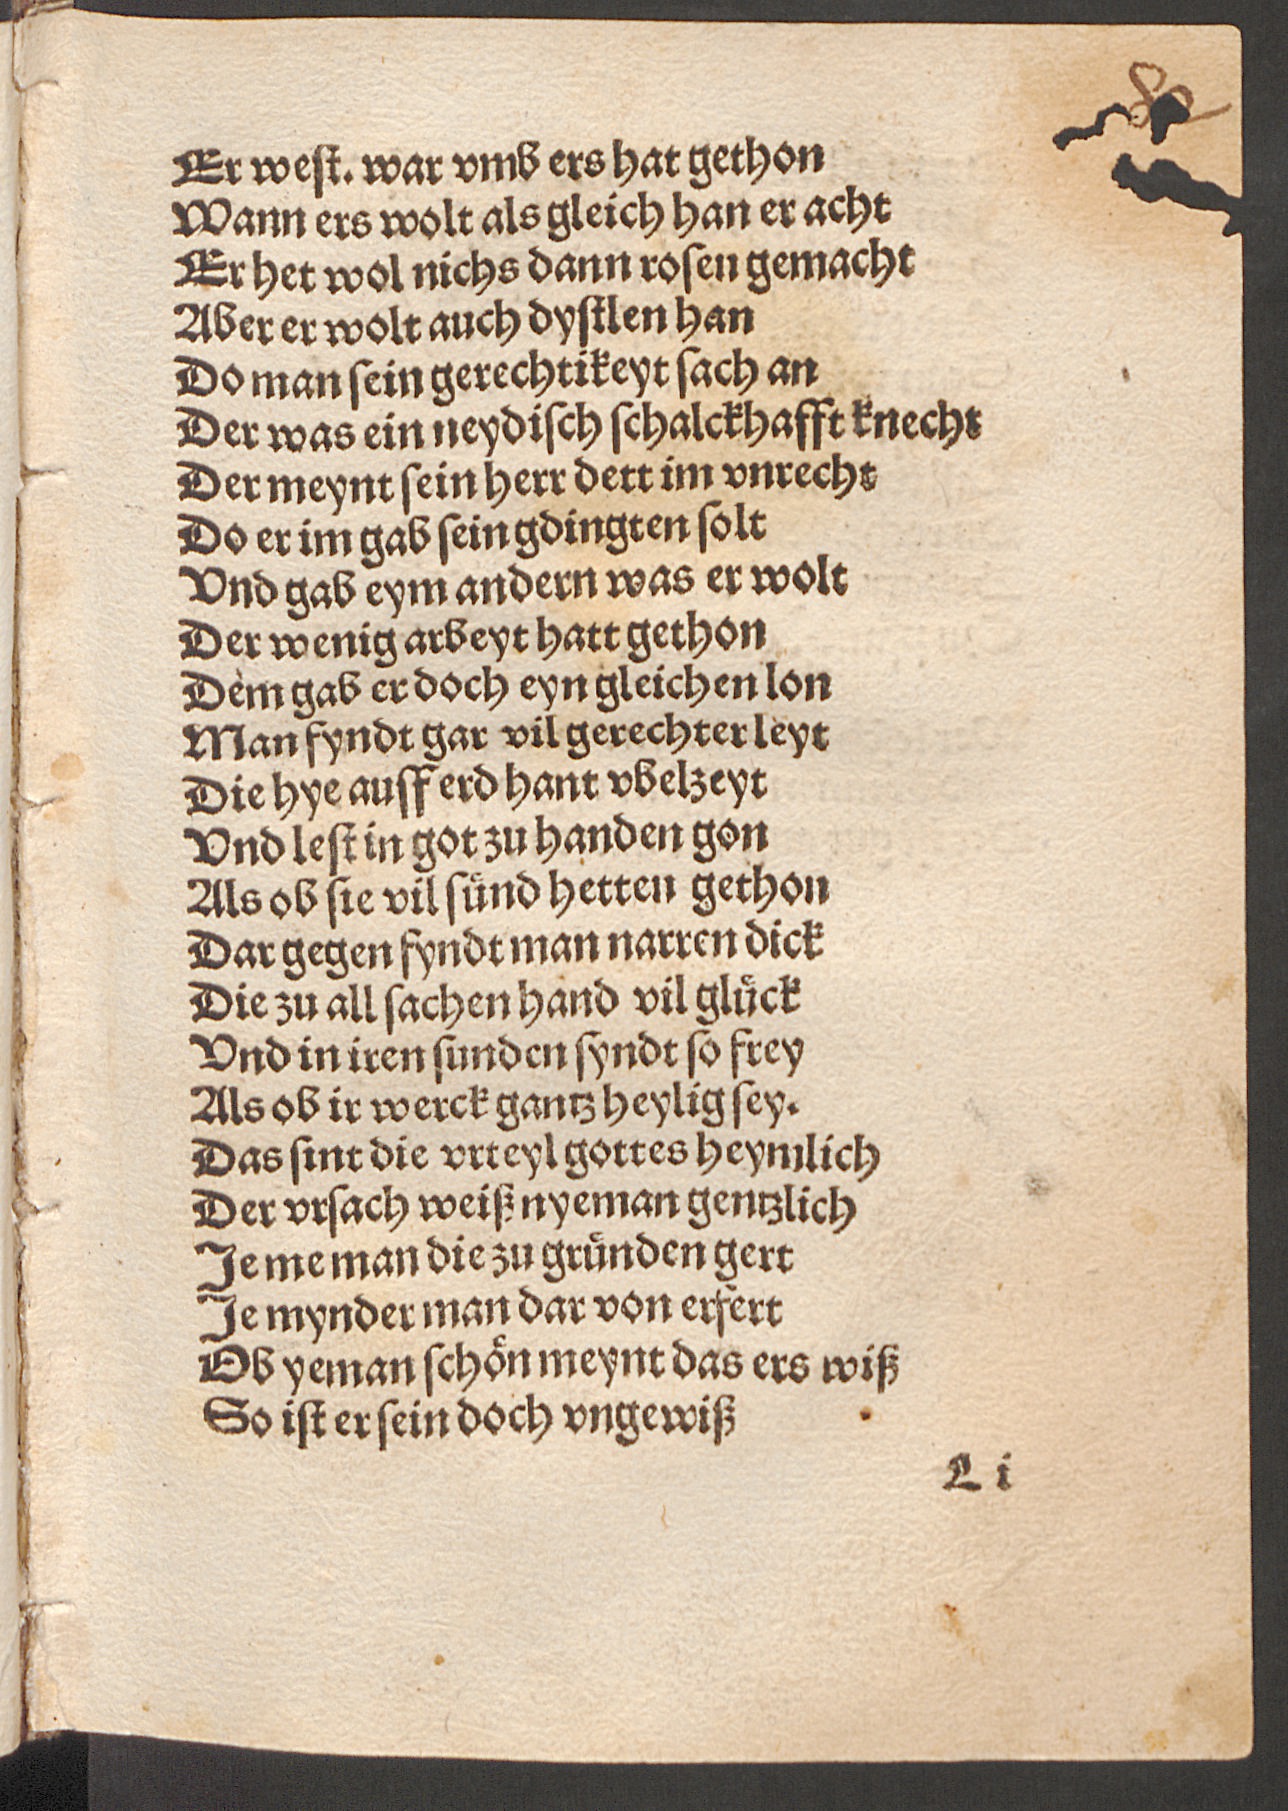 80
Er west. war vmb ers hat gethon
Wann ers wolt als gleich han er acht
Er het wol nichs dann rosen gemacht
Aber er wolt auch dystlen han
Do man sein gerechtikeyt sach an
Der was ein neydisch schalckhafft knecht
Der meynt sein herr dett im vnrecht
Do er im gab sein gdingten solt
Vnd gab eym andern was er wolt
Der wenig arbeyt hatt gethon
Dem gab er doch eyn gleichen lon
Man fyndt gar vil gerechter leyt
Die hye auff erd hant vbelzeyt
Vnd lest in got zu handen gon
Als ob sie vil sünd hetten gethon
Dar gegen fyndt man narren dick
Die zu all sachen hand vil glück
Vnd in iren sunden syndt so frey
Als ob ir werck gantz heylig sey.
Das sint die vrteyl gottes heymlich
Der vrsach weiß nyeman gentzlich
Je me man die zu gründen gert
Je mynder man dar von erfert
Ob yeman schön meynt das ers wiß
So ist er sein doch vngewiß
L i